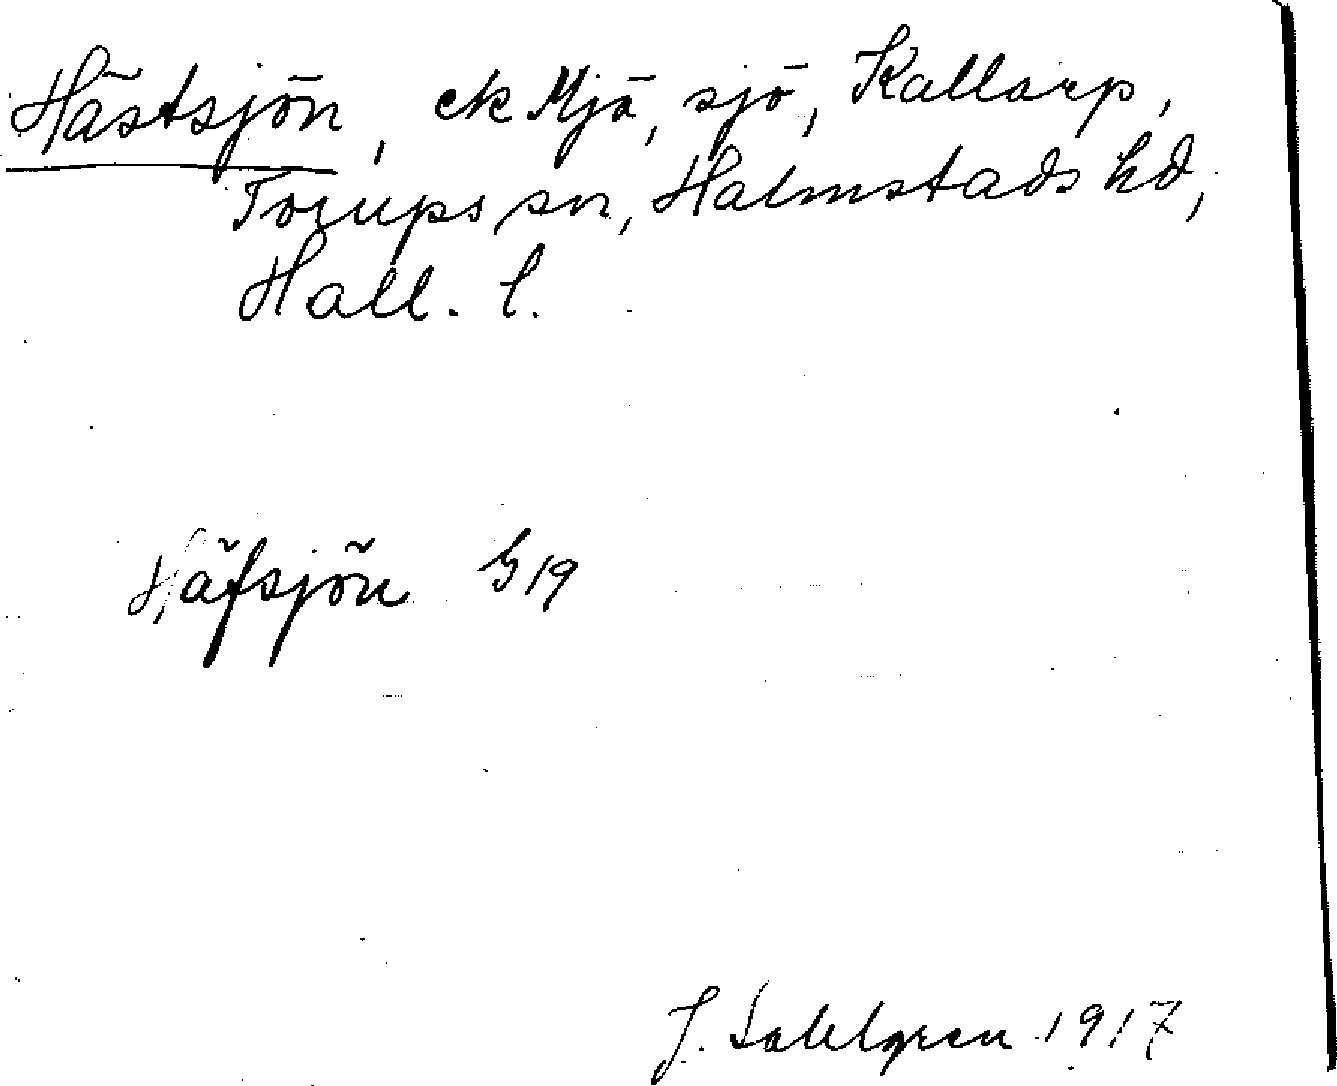 Hästsjön, ek Mjä, sjö, Kallarp,
Torups sn, Halmstads hd,
Hall. l.
Häfsjön G 19
J. Sahlgren 1917